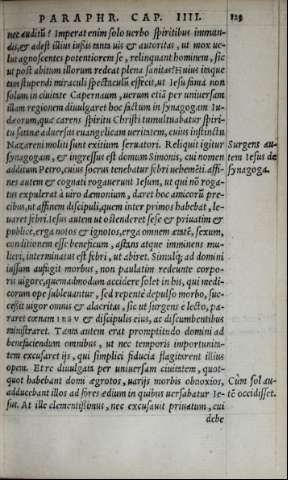 PARAPHR. CAP. IIII. 123
nec auditū? Imperat enim solo uerbo spiritibus immun-
dis, & adest illius iußis tanta uis & autoritas, ut mox ue-
lut agnoscentes potentiorem se, relinquant hominem, sic
ut post abitum illorum redeat plena sanitas? Huius itaque
tam stupendi miraculi spectaculū effecit, ut Iesu fama non
solum in ciuitate Capernaum, uerum etiā per uniuersam
illam regionem diuulgaret hoc factum in synagogam Iu-
dæorum, quæ carens spiritu Christi tumultuabatur spiri-
tu satanæ aduersus euangelicam ueritatem, cuius instinctu
Nazareni moliti sunt exitium seruatori. Reliquit igitur
synagogam, & ingressus est domum Simonis, cui nomen
additum Petro, cuius socrus tenebatur febri uehemēti. affi-
nes autem & cognati rogauerunt Iesum, ut qui nō roga-
tus expulerat à uiro dæmonium, daret hoc amicorū pre-
cibus, ut affinem discipuli, quem inter primos habebat, le-
uaret febri. Iesus autem ut ostenderet sese & priuatim &
publice, erga notos & ignotos, erga omnem ætatē, sexum,
conditionem esse beneficum, astans atque imminens mu-
lieri, interminatus est febri, ut abiret. Simulq; ad domini
iussum aufugit morbus, non paulatim redeunte corpo-
ris uigore, quemadmodum accidere solet in his, qui medi-
corum ope subleuantur, sed repentè depulso morbo, suc-
cessit uigor omnis & alacritas, sic ut surgens e lecto, pa-
raret cœnam IESV & discipulis eius, ac discumbentibus
ministraret. Tanta autem erat promptitudo domini ad
beneficiendum omnibus, ut nec temporis importunita-
tem excusaret ijs, qui simplici fiducia flagitarent illius
opem. Etre diuulgata per uniuersam ciuitatem, quot-
quot habebant domi ægrotos, uarijs morbis obnoxios,
adducebant illos ad fores ædium in quibus uersabatur Ie-
sus. At ille clementißimus, nec excusauit priuatum, cui
debe
Surgens au-
tem Iesus de
synagoga.
Cùm sol au-
tē occidisset.